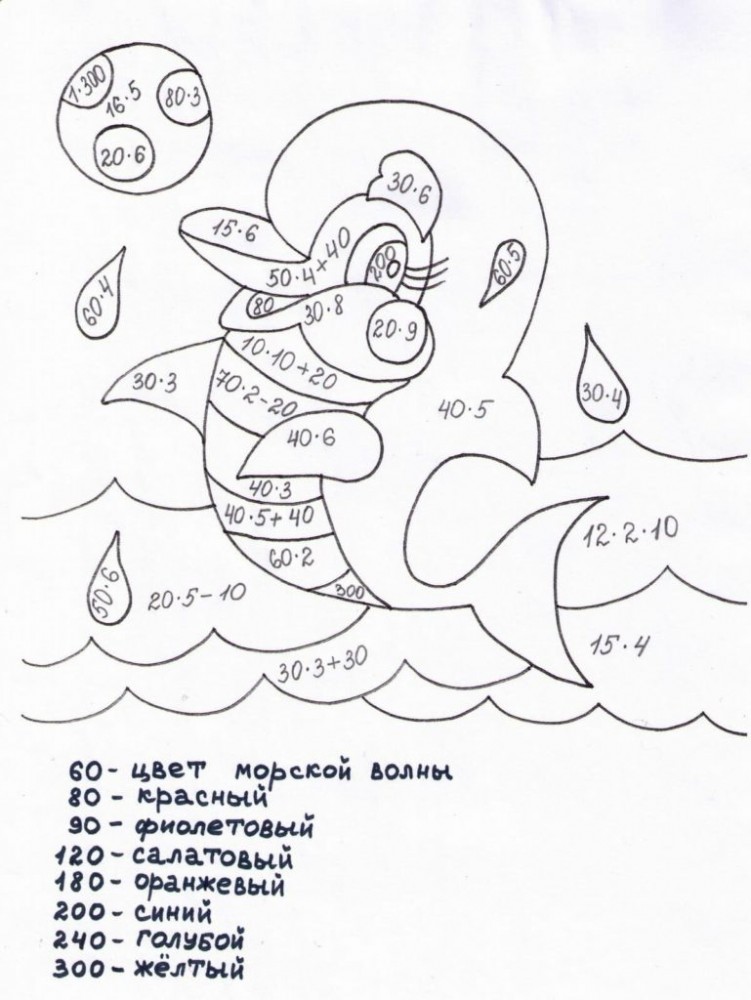 1·300
16·5
80·3
20·6
30·6
15·6
50·4+40
200
60·5
60·4
80
30·8
20·9
10·10+20
30·3
70·2-20
30·4
40·5
40·6
40·3
40·5+40
12·2·10
60·2
50·6
20·5-10
300
15·4
30·3+30
60- цвет морской волны
80 - красный
90 - фиолетовый
120-салатовый
180-оранжевый
200-синий
240-голубой
300-жёлтый